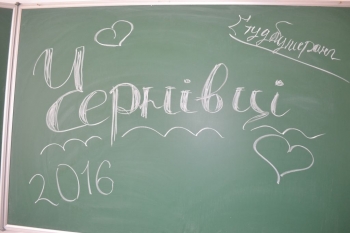 Студбумеранг
Чернівці
2016